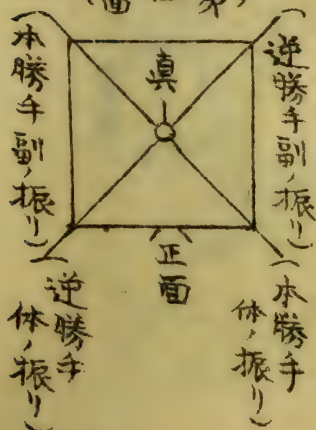 （逆勝手副ノ振リ）
（本勝手副ノ振リ）
真
正面
（本勝手
体ノ振リ）
逆勝手
体ノ振リ）